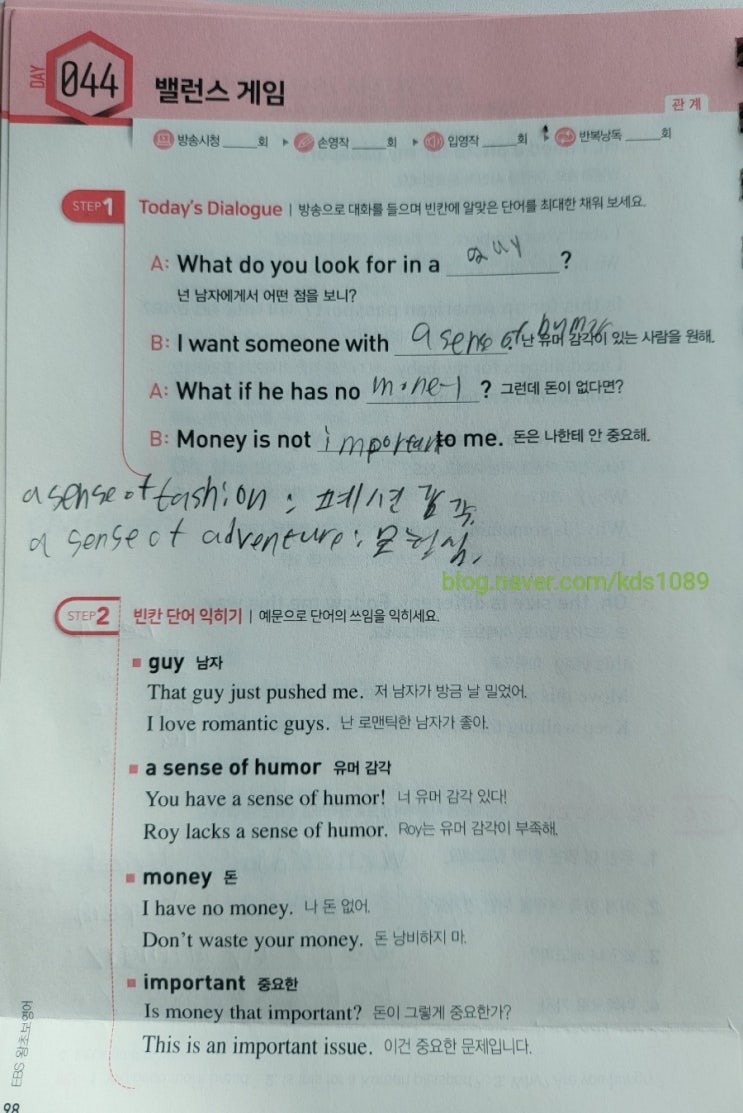 DAY 044 밸런스 게임
관계
방송시청 _____회 ▶ 손영작 _____회 ▶ 입영작 _____회 ▶ 반복낭독 _____회
STEP 1 Today's Dialogue | 방송으로 대화를 들으며 빈칸에 알맞은 단어를 최대한 채워 보세요.
A: What do you look for in a guy ?
넌 남자에게서 어떤 점을 보니?
B: I want someone with a sense of humor. 난 유머 감각이 있는 사람을 원해.
A: What if he has no money ? 그런데 돈이 없다면?
B: Money is not important to me. 돈은 나한테 안 중요해.
a sense of fashion : 패션 감각.
a sense of adventure : 모험심.
blog.naver.com/kds1089
STEP 2 빈칸 단어 익히기 | 예문으로 단어의 쓰임을 익히세요.
guy 남자
That guy just pushed me. 저 남자가 방금 날 밀었어.
I love romantic guys. 난 로맨틱한 남자가 좋아.
a sense of humor 유머 감각
You have a sense of humor! 너 유머 감각 있다!
Roy lacks a sense of humor. Roy는 유머 감각이 부족해.
money 돈
I have no money. 나 돈 없어.
Don't waste your money. 돈 낭비하지 마.
important 중요한
Is money that important? 돈이 그렇게 중요한가?
This is an important issue. 이건 중요한 문제입니다.
EBS 왕초보영어
98